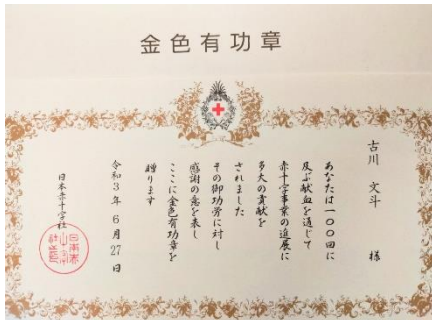 金色有功章
古川 文斗 様
あなたは一〇〇回に
及ぶ献血を通じて
赤十字事業の進展に
多大の貢献を
されました
その御功労に対し
感謝の意を表し
ここに金色有功章を
贈ります
令和3年6月27日
日本赤十字社